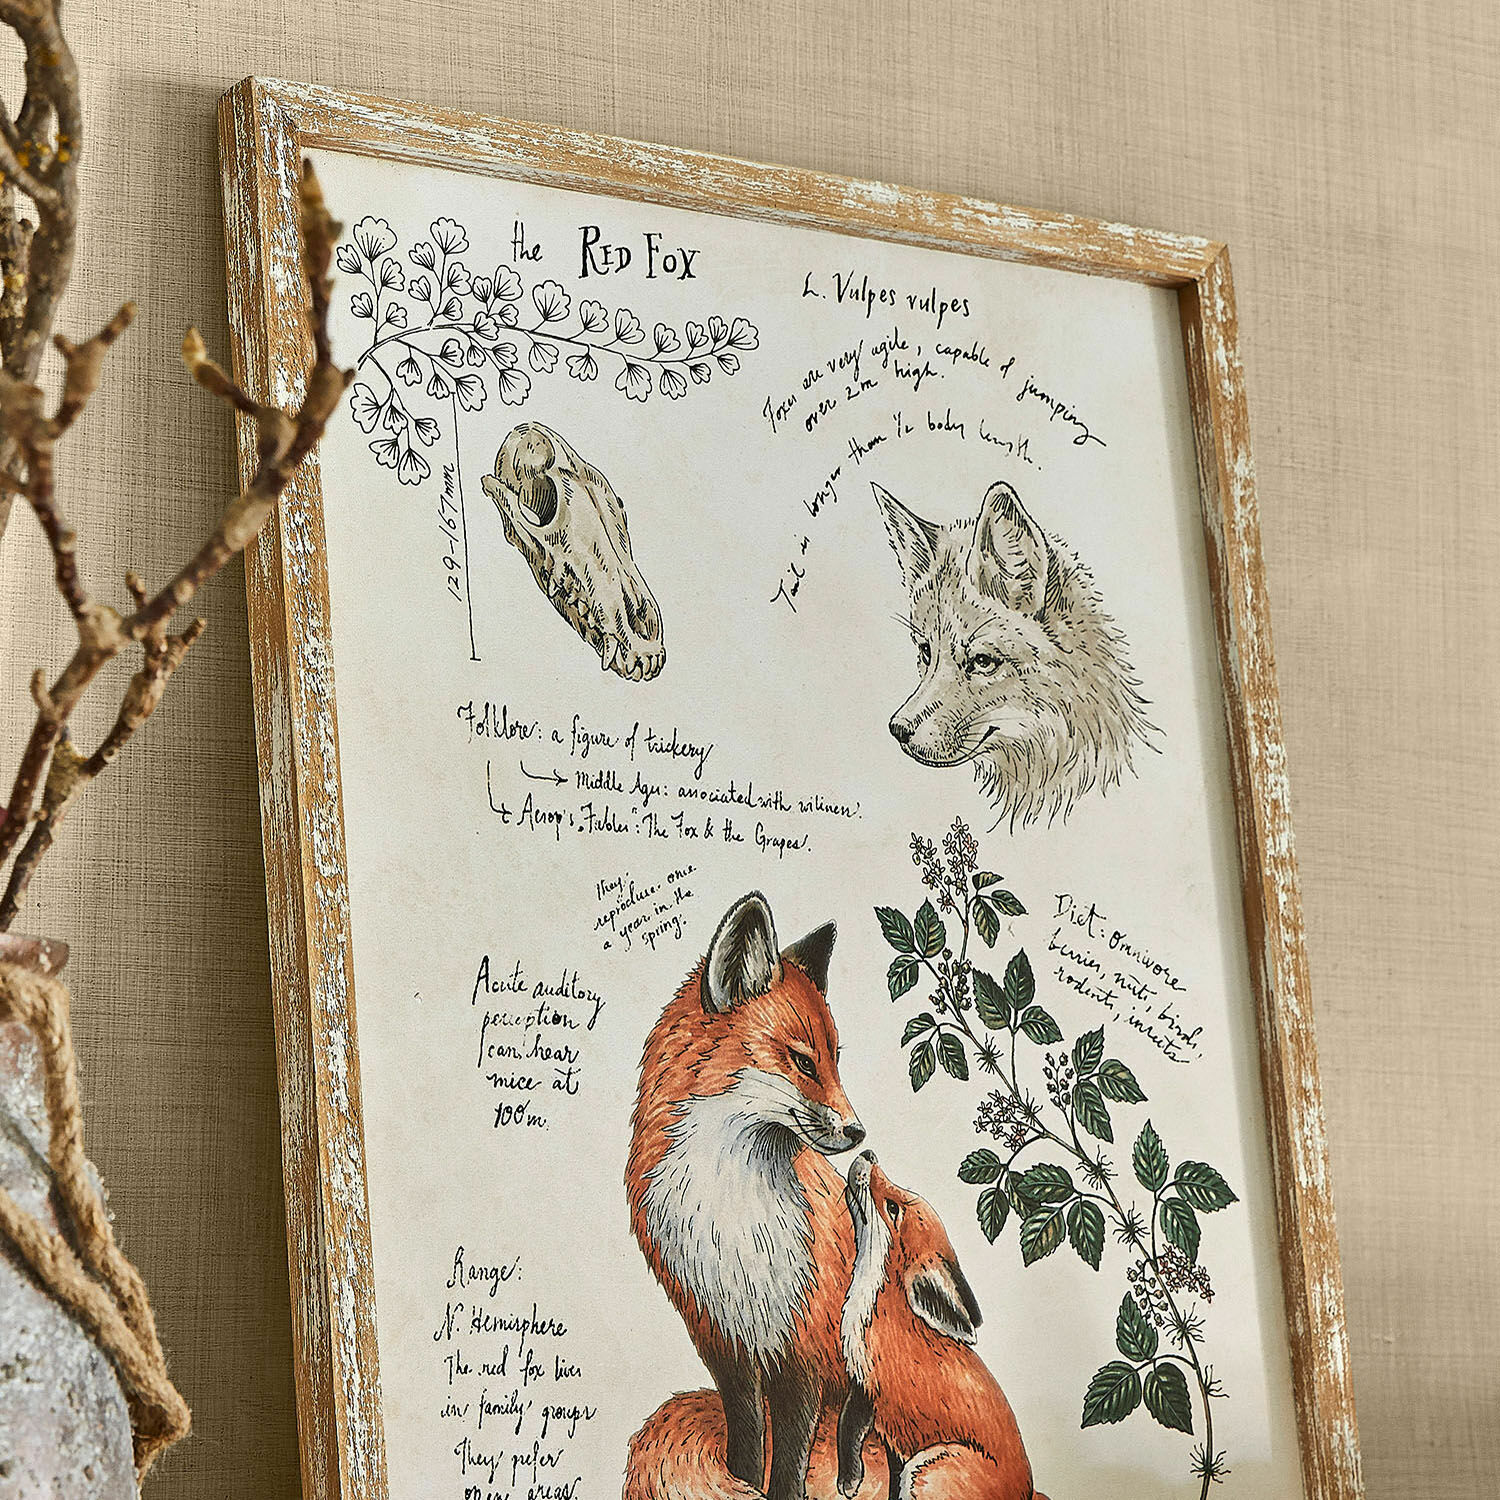 the RED FOX
L. Vulpes vulpes
Foxes are very agile, capable of jumping
over 2m high.
Tail is longer than 1/2 body length.
129-167mm
Folklore: a figure of trickery
Middle Ages: associated with wiliness.
Aesop's „Fables": The Fox & the Grapes.
they
reproduce once
a year in the
spring.
Acute auditory
perception
can hear
mice at
100m.
Diet: Omnivore
berries, nuts, birds,
rodents, insects
Range:
N. Hemisphere
The red fox lives
in family groups
They prefer
open areas.